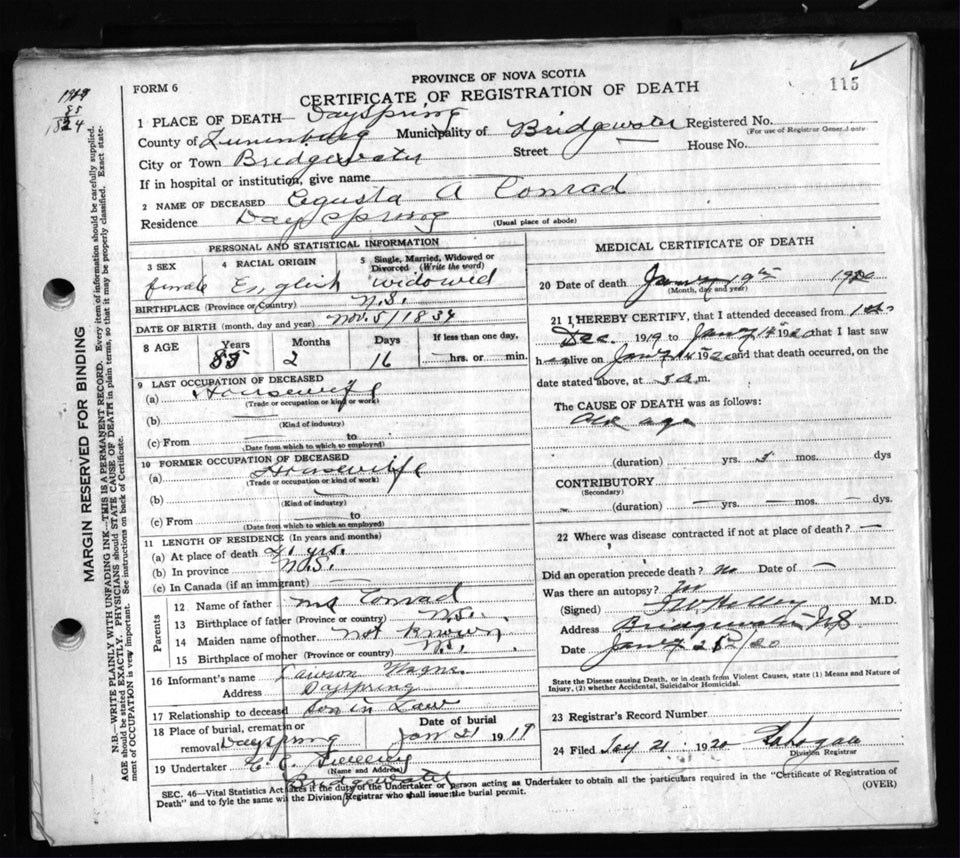 115
1919
85
1834
FORM 6
PROVINCE OF NOVA SCOTIA
CERTIFICATE OF REGISTRATION OF DEATH
1 PLACE OF DEATH— Dayspring
County of Lunenburg Municipality of Bridgewater Registered No.
(For use of Registrar General only)
City or Town Bridgewater Street — House No.
If in hospital or institution, give name
2 NAME OF DECEASED Egusta A Conrad
Residence Day spring (Usual place of abode)
PERSONAL AND STATISTICAL INFORMATION
3 SEX 4 RACIAL ORIGIN 5 Single, Married, Widowed or Divorced (Write the word)
female English widowed
BIRTHPLACE (Province or Country) N.S.
DATE OF BIRTH (month, day and year) Nov. 5/1834
8 AGE Years Months Days If less than one day,
85 2 16 —hrs. or min.
9 LAST OCCUPATION OF DECEASED
(a) Housewife
(Trade or occupation or kind or work)
(b) —
(Kind of industry)
(c) From — to —
(Date from which to which so employed)
10 FORMER OCCUPATION OF DECEASED
(a) Housewife
(Trade or occupation or kind of work)
(b) —
(Kind of industry)
(c) From — to
(Date from which to which so employed)
11 LENGTH OF RESIDENCE (In years and months)
(a) At place of death yrs.
(b) In province N.S.
(c) In Canada (if an immigrant) —
Parents
12 Name of father Conrad
13 Birthplace of father (Province or country) N.S.
14 Maiden name of mother Not known
15 Birthplace of mother (Province or country) N.S.
16 Informant's name Lawson Wagner
Address Dayspring
17 Relationship to deceased Son in Law
18 Place of burial, cremation or removal Dayspring Date of burial Jan 21 1919
19 Undertaker C. E. Sweeny
(Name and Address) Bridgewater
MEDICAL CERTIFICATE OF DEATH
20 Date of death Jany 19th 1920
(Month, day and year)
21 I HEREBY CERTIFY, that I attended deceased from 1st
Dec. 1919 to Jany 14th 1920 that I last saw
h alive on Jany 14 1920 and that death occurred, on the
date stated above, at 5 a.m.
The CAUSE OF DEATH was as follows:
Old age
(duration) — yrs. mos. dys
CONTRIBUTORY
(Secondary)
(duration) — yrs. — mos. — dys.
22 Where was disease contracted if not at place of death? —
Did an operation precede death? No Date of —
Was there an autopsy? No
(Signed) M.D.
Address Bridgewater N.S.
Date Jany /20
State the Disease causing Death, or in death from Violent Causes, state (1) Means and Nature of Injury, (2) whether Accidental, Suicidal or Homicidal.
23 Registrar's Record Number
24 Filed Jay 21 1920
Division Registrar
SEC. 46—Vital Statistics Act makes it the duty of the Undertaker or person acting as Undertaker to obtain all the particulars required in the "Certificate of Registration of
Death" and to fyle the same wi the Division Registrar who shall issue the burial permit. (OVER)
MARGIN RESERVED FOR BINDING
N.B.—WRITE PLAINLY WITH UNFADING INK—THIS IS A PERMANENT RECORD. Every item of information should be carefully supplied.
AGE should be stated EXACTLY. PHYSICIANS should STATE CAUSE OF DEATH in plain terms, so that it may be properly classified. Exact state-
ment of OCCUPATION is very important. See instructions on back of Certificate.